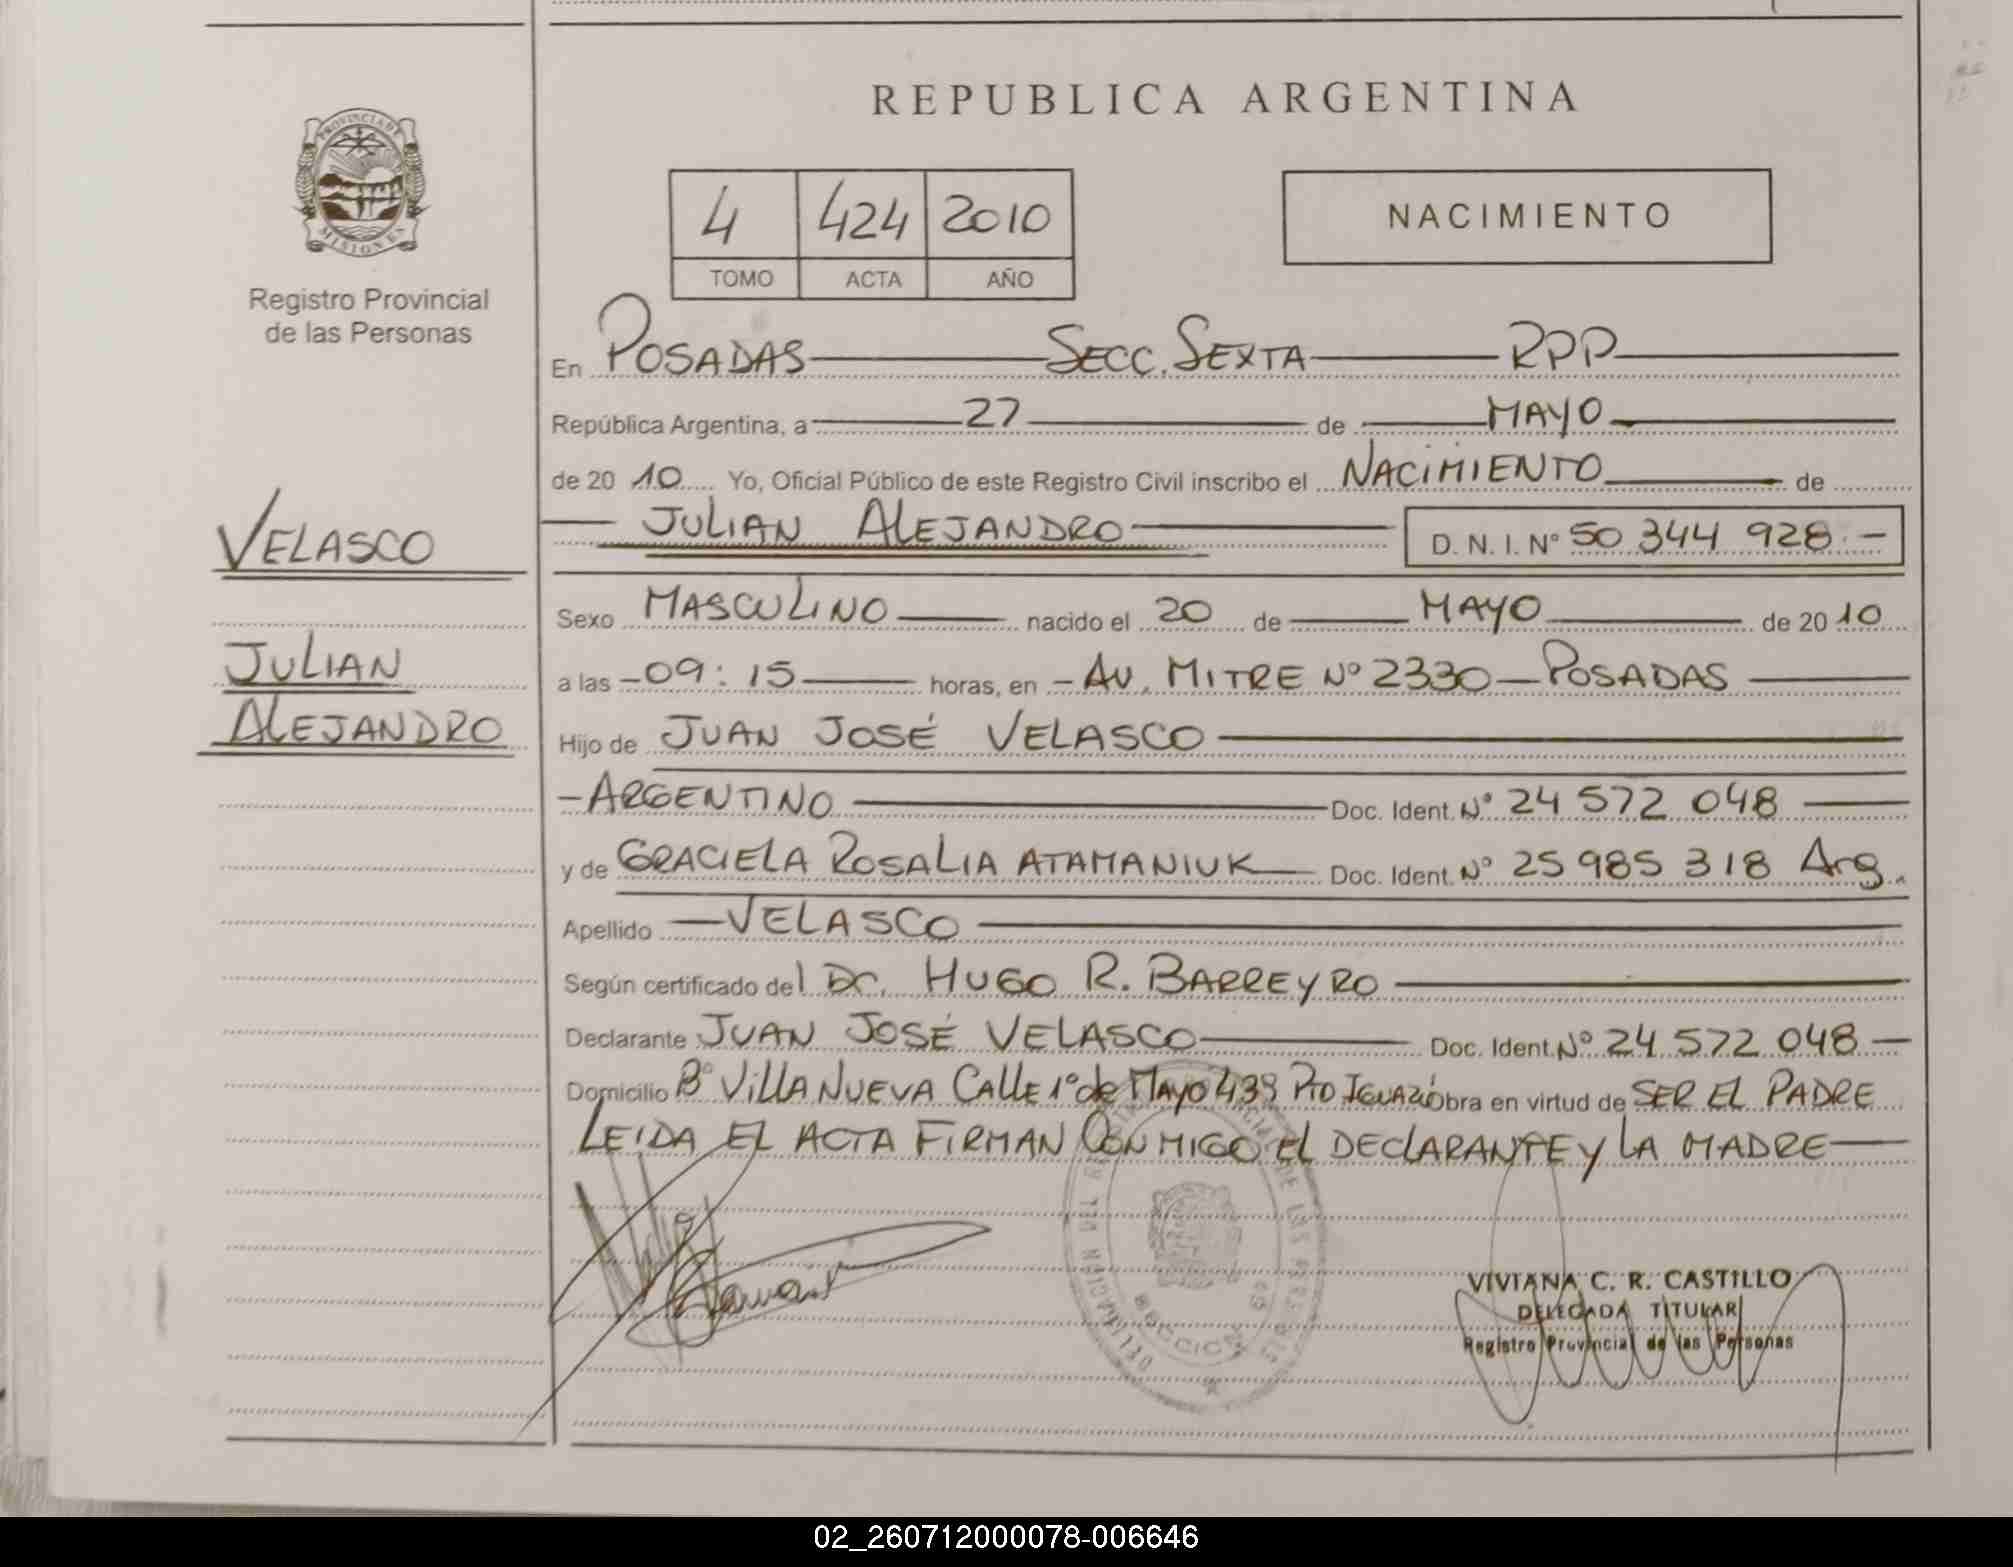 REPUBLICA ARGENTINA
PROVINCIA DE
MISIONES
Registro Provincial
de las Personas
4 424 2010
TOMO ACTA AÑO
NACIMIENTO
En POSADAS SECC. SEXTA RPP
República Argentina, a 27 de MAYO
de 20 10 Yo, Oficial Público de este Registro Civil inscribo el NACIMIENTO de
JULIAN ALEJANDRO D. N. I. Nº 50 344 928.-
VELASCO
JULIAN
ALEJANDRO
Sexo MASCULINO nacido el 20 de MAYO de 20 10
a las - 09:15 horas, en - AV. MITRE Nº 2330 - POSADAS
Hijo de JUAN JOSÉ VELASCO
- ARGENTINO Doc. Ident. Nº 24 572 048
y de GRACIELA ROSALIA ATAMANIUK Doc. Ident. Nº 25 985 318 Arg.
Apellido - VELASCO
Según certificado del DC. HUGO R. BARREYRO
Declarante JUAN JOSÉ VELASCO Doc. Ident. Nº 24 572 048 -
Domicilio Bº VILLA NUEVA CALLE 1º de MAYO 439 PTO IGUAZÚ obra en virtud de SER EL PADRE
LEIDA EL ACTA FIRMAN CONMIGO EL DECLARANTE Y LA MADRE
SECCION
VIVIANA C. R. CASTILLO
DELEGADA TITULAR
Registro Provincial de las Personas
02_260712000078-006646